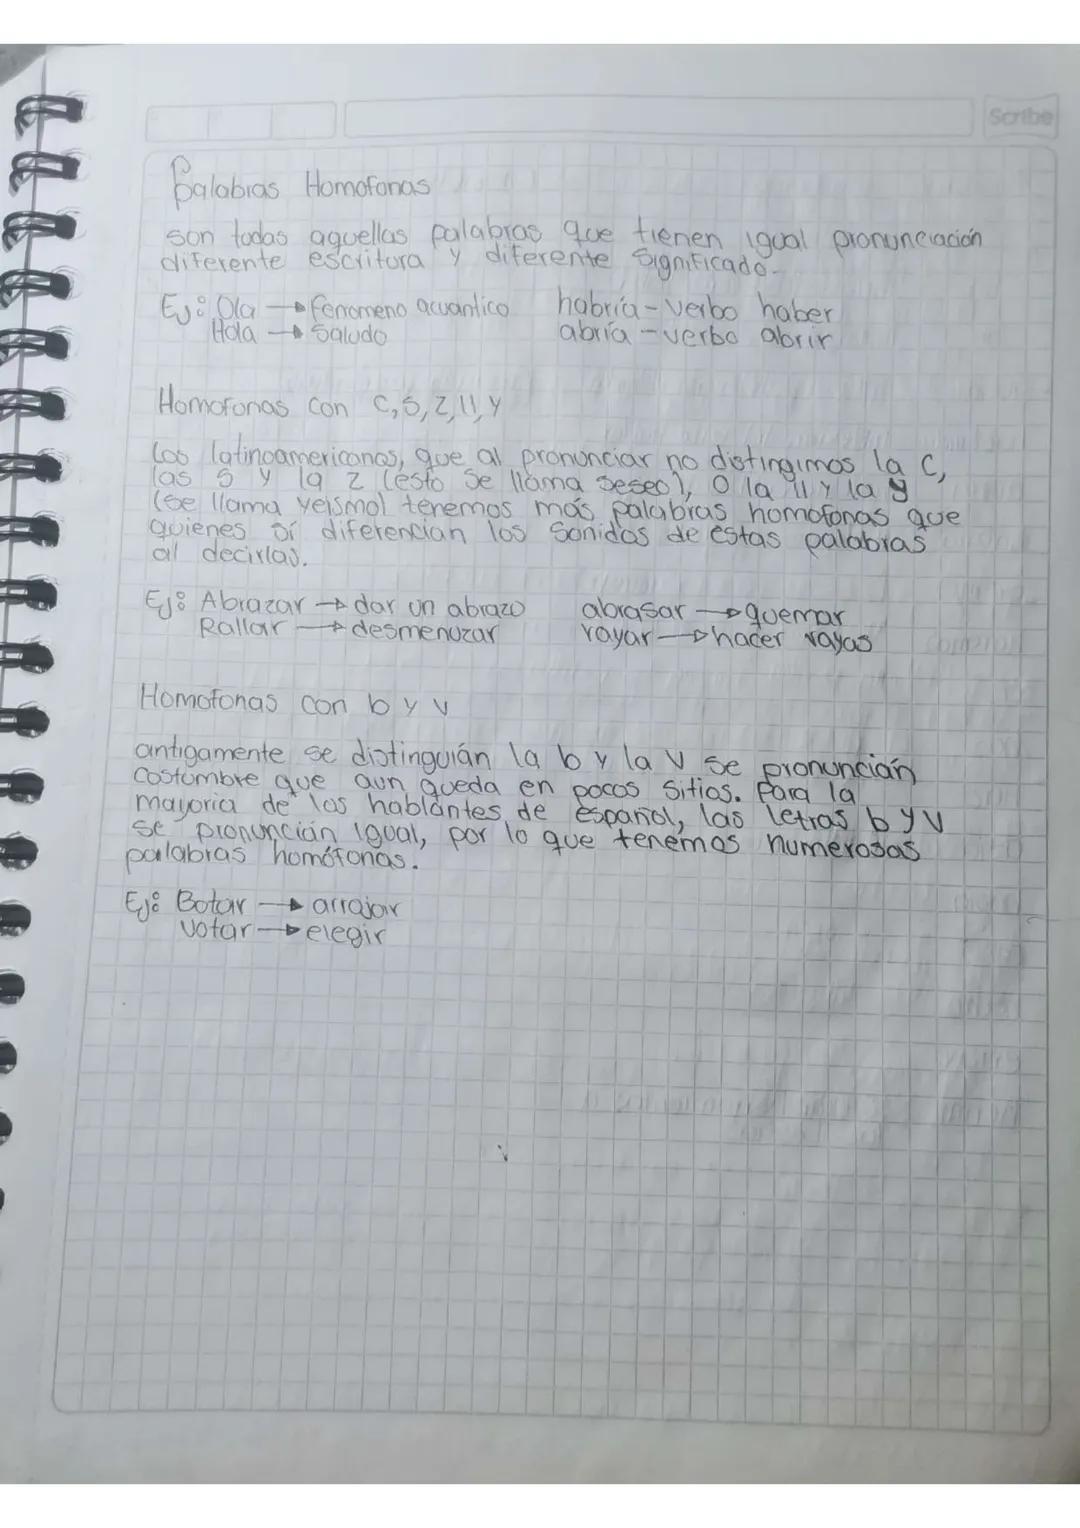 Scribe
Palabras Homofonas
son todas aquellas palabras que tienen igual pronunciación
diferente escritura y diferente significado.
Ej: Ola → fenomeno acuantico habría - verbo haber
Hola → Saludo abría - verbo abrir
Homofonas con C, S, Z, ll, Y
Los latinoamericanos, que al pronunciar no distingimos la C,
las S y la Z (esto se llama seseo), O la ll y la y
(se llama yeísmo) tenemos más palabras homofonas que
quienes sí diferencian los sonidos de estas palabras
al decirlas.
Ej: Abrazar → dar un abrazo abrasar → quemar
Rallar → desmenuzar rayar → hacer rayas
Homofonas con b y v
antigamente se distinguián la b y la v se pronuncián
costumbre que aun queda en pocos sitios. Para la
mayoria de los hablantes de español, las letras b y v
se pronuncián igual, por lo que tenemos numerosas
palabras homófonas.
Ej: Botar → arrajar
Votar → elegir